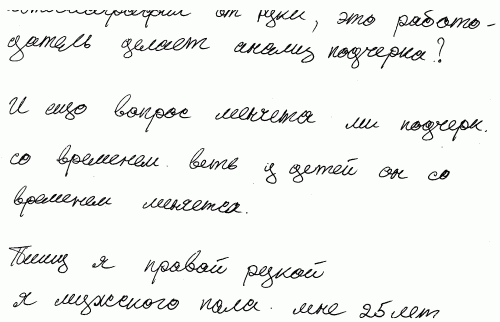 от руки, это работо-
датель делает анализ подчерка?
И ещо вопрос менчетса ли подчерк.
со временем. веть у детей он со
временем менятса.
Пишу я правой рукой
я мужского пола. мне 25 лет